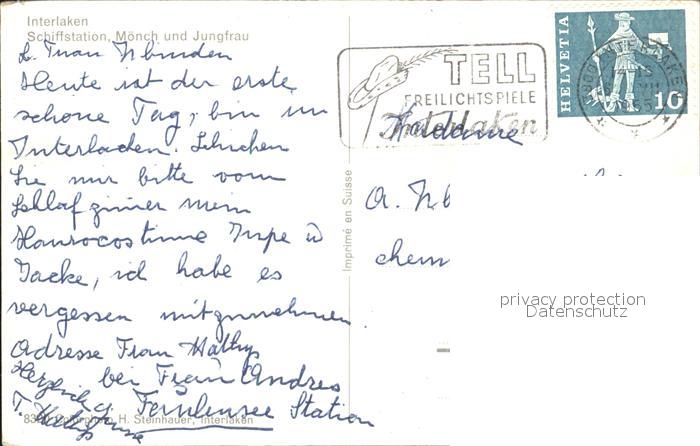 Interlaken
Schiffstation, Mönch und Jungfrau
L. Frau Nbinden
Heute ist der erste
schöne Tag, bin in
Interlacken. Schicken
Sie mir bitte vom
Schlafzimer mein
Jupe u
Jacke, ich habe es
vergessen mitzunehmen.
Adresse Frau Mathys
bei Frau Andres
Station
Herzlich
T. Mathys
H. Steinhauer, Interlaken
Imprimé en Suisse
TELL
FREILICHTSPIELE
Interlaken
HELVETIA
10
Madame
A. Nb
chem
privacy protection
Datenschutz